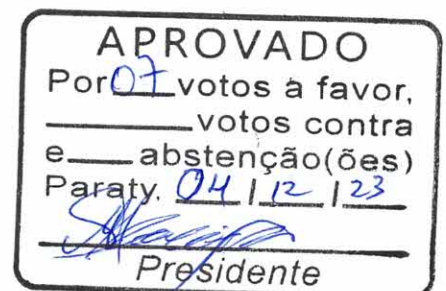 APROVADO
Por 07 votos a favor,
votos contra
e abstenção(ões)
Paraty, 04 / 12 / 23
Presidente